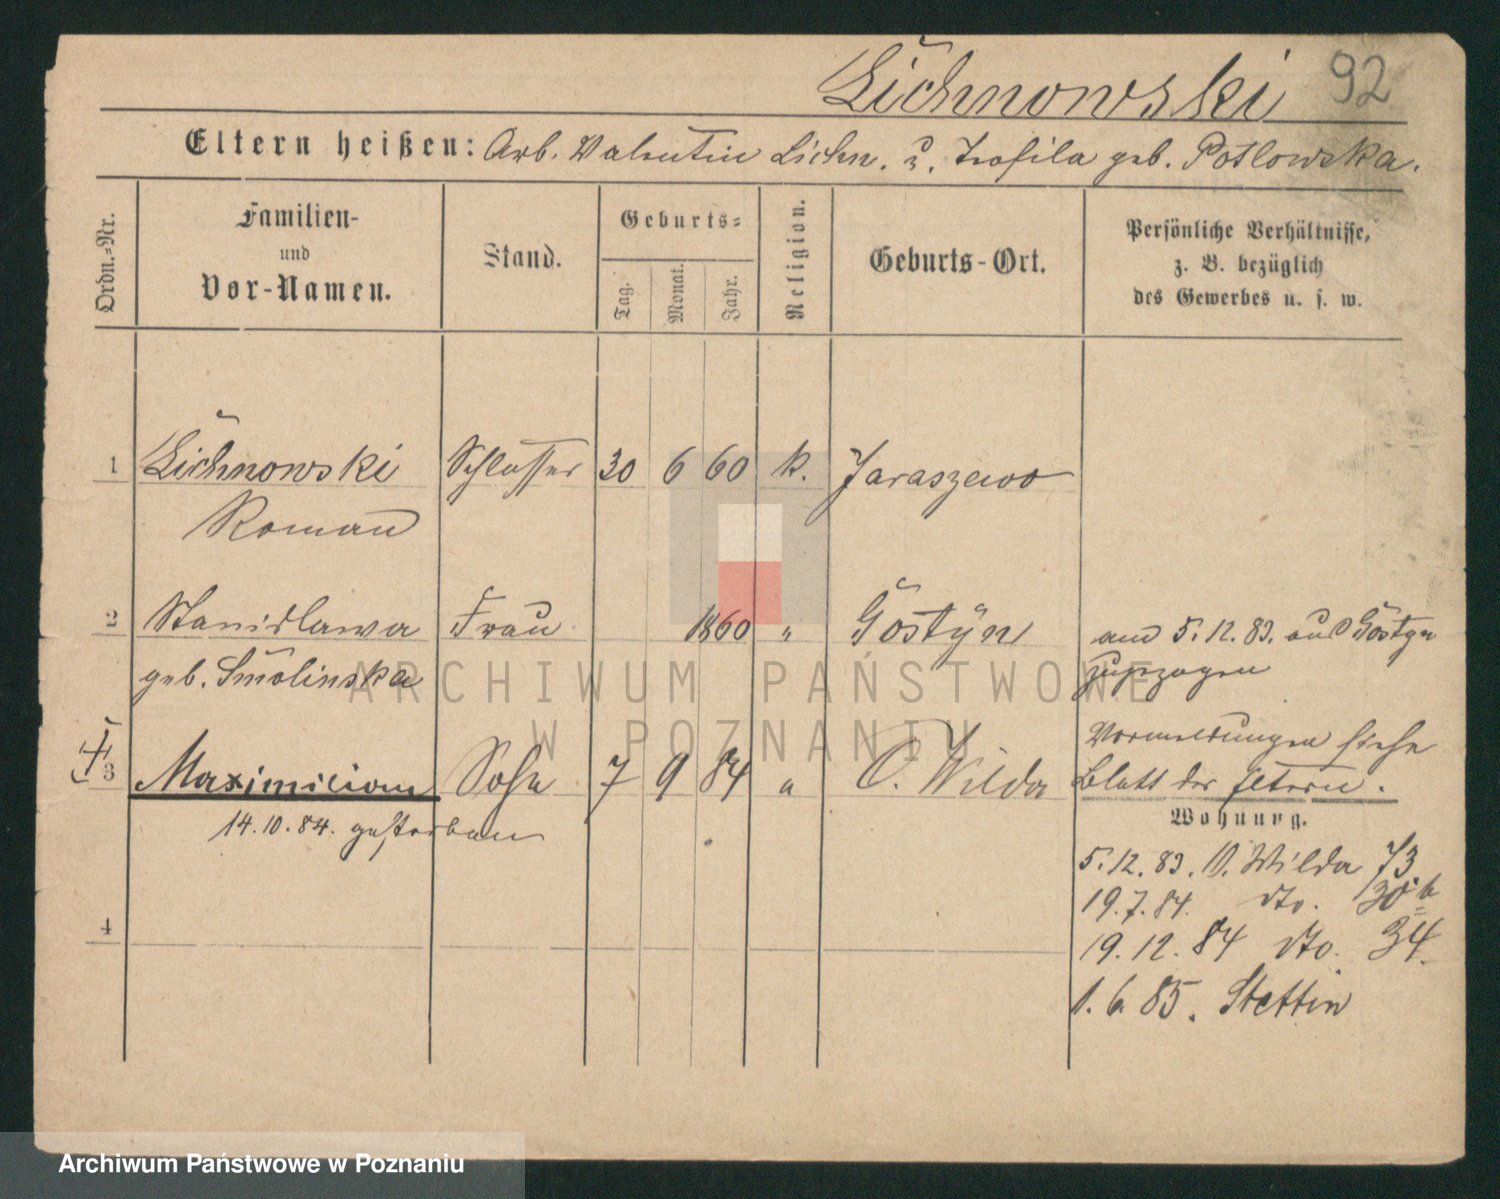 Lichnowski 92
Eltern heißen: Arb. Valentin Lichn. u. Teofila geb. Potlowska.
Ordn.-Nr.
Familien-
und
Vor-Namen.
Stand.
Geburts-
Tag. Monat. Jahr.
Religion.
Geburts-Ort.
Persönliche Verhältnisse,
z. B. bezüglich
des Gewerbes u. s. w.
1 Lichnowski Schlosser 30 6 60 k. Jaraszewo
Roman
2 Stanislawa Frau 1860 " Gostyn
geb. Smolinska
am 5.12.83. aus Gostyn
zugezogen
3 Maximilian Sohn 7 9 84 " O. Wilda
14.10.84. gestorben
Vormeldungen siehe
Blatt der Eltern.
Wohnung.
5.12.83. O. Wilda 73
19.7.84. dto. 30b
19.12.84 dto. 34.
1.6.85. Stettin
4
ARCHIWUM PAŃSTWOWE
W POZNANIU
Archiwum Państwowe w Poznaniu